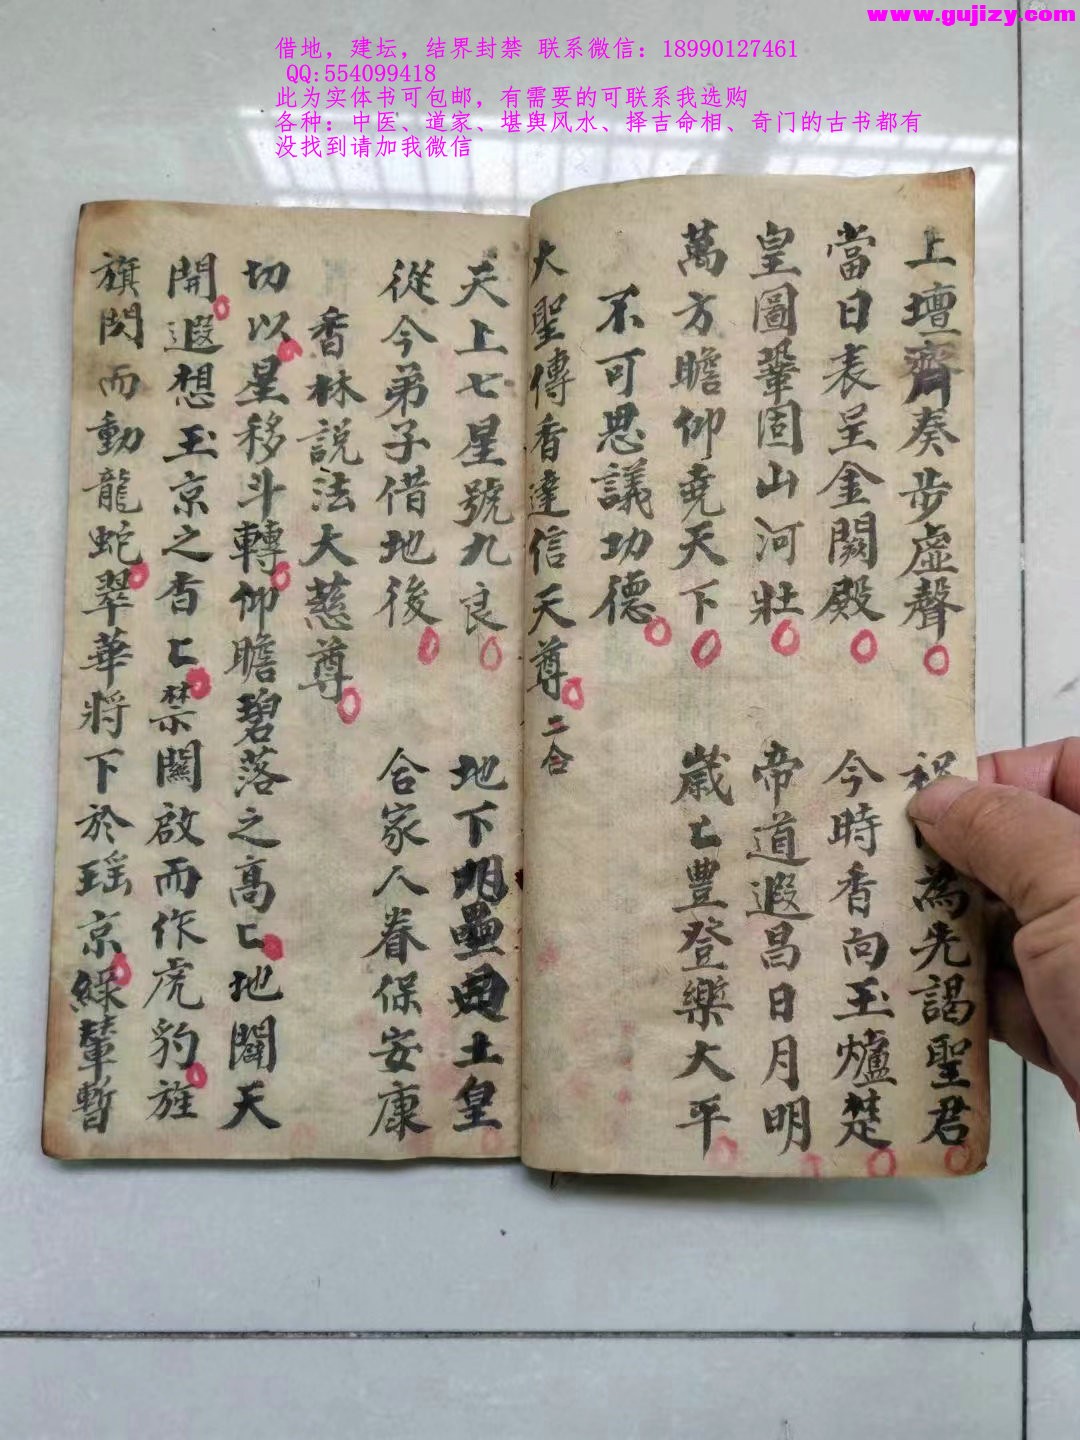 www.gujizy.com
借地，建坛，结界封禁 联系微信：18990127461
QQ:554099418
此为实体书可包邮，有需要的可联系我选购
各种：中医、道家、堪舆风水、择吉命相、奇门的古书都有
没找到请加我微信
上壇齊奏步虛聲 祝 為先謁聖君
當日表呈金闕殿 今時香向玉爐楚
皇圖鞏固山河壯 帝道遐昌日月明
萬方瞻仰堯天下 歲匕豐登樂大平
不可思議功德
大聖傳香達信天尊 二合
天上七星號九良 地下 土皇
從今弟子借地後 合家人眷保安康
香林說法大慈尊
切以星移斗轉仰瞻碧落之高匕地闊天
開遐想玉京之杳匕禁闕啟而作虎豹旌
旗閃而動龍蛇翠華將下於瑶京綵輦暫